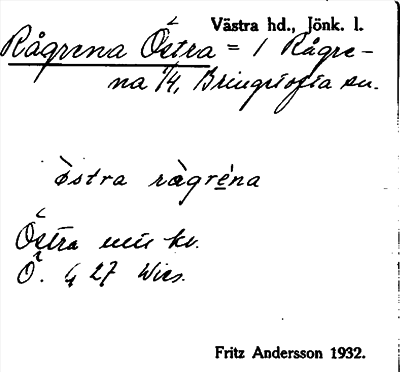 Västra hd., Jönk. l.
Rågrena Östra = 1 Rågre-
na 1/4, Bringetofta sn.
östra rågréna
Östra
Ö. 27
Fritz Andersson 1932.